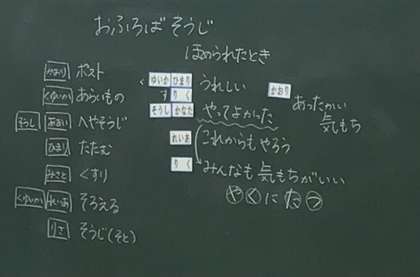 おふろばそうじ
ほめられたとき
かおり ポスト
ゆいか あらいもの
そうし あおい へやそうじ
ひまり たたむ
みさと くすり
ゆいか れいあ そろえる
りさ そうじ(そと)
ゆいか ひまり うれしい
りく
そうし かなた やってよかった
かおり あったかい
気もち
れいあ これからもやろう
りく みんなも気もちがいい
やくにたつ